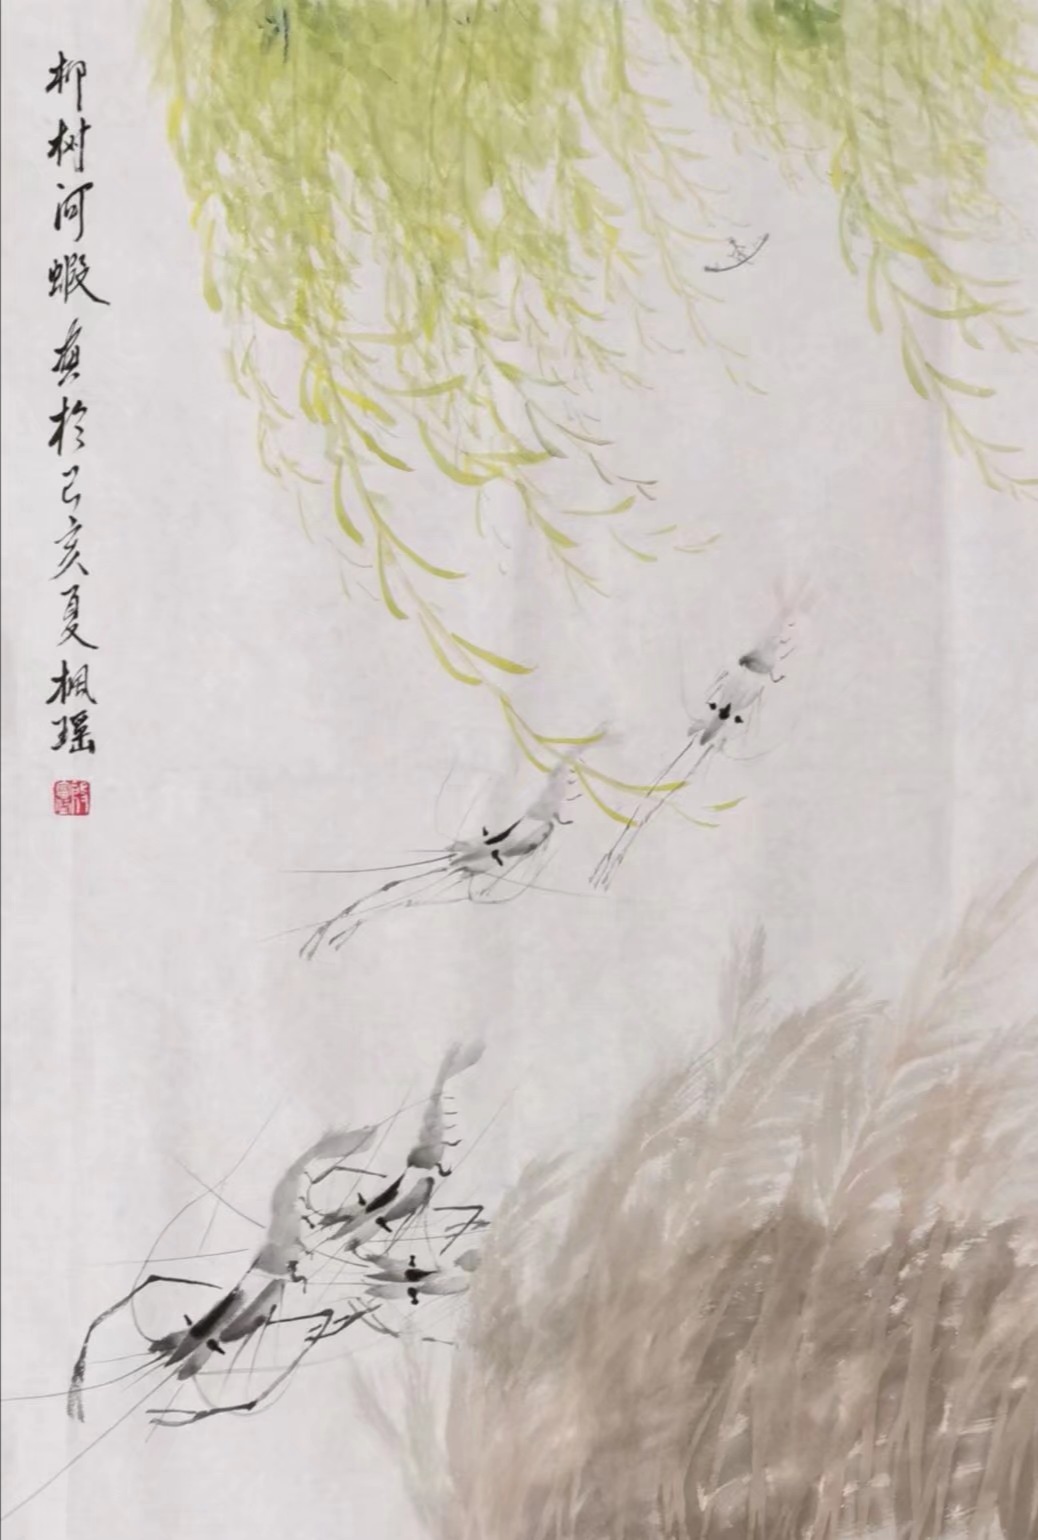 柳树河蝦寅於己亥夏枫瑶